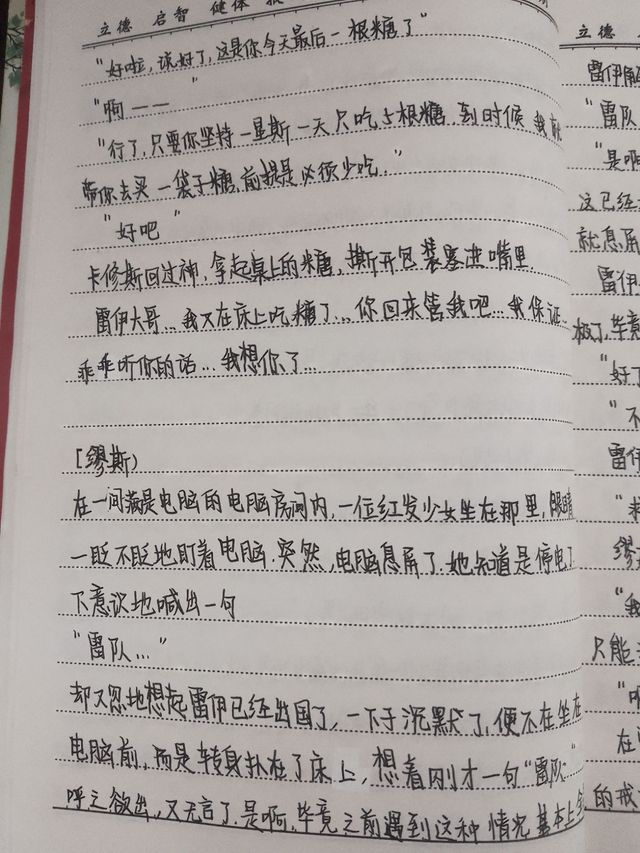 立德 启智 健体
"好啦,说好了,这是你今天最后一根糖了"
"啊——"
"行了,只要你坚持一星斯一天只吃5根糖,到时候我就
带你去买一袋子糖,前提是必须少吃."
"好吧"
卡修斯回过神,拿起桌上的糖,撕开包装塞进嘴里
雷伊大哥...我又在床上吃糖了...你回来管我吧...我保证
乖乖听你的话...我想你了...
[缪斯)
在一间满是电脑的电脑房间内,一位红发少女坐在那里,眼睛
一眨不眨地盯着电脑.突然,电脑息屏了.她知道是停电了
下意识地喊出一句
"雷队..."
却又忽地想起雷伊已经出国了,一下子沉默了,便不在坐在
电脑前,而是转身扑在了床上,想着刚才一句"雷队"
呼之欲出,又无言了.是啊,毕竟之前遇到这种情况基本上
立德
雷伊
"雷队
"是啊
这已经
就息屏
雷伊
极了,毕竟
"好了
"不
雷伊
缪
"我
只能
"啊
在
的戒